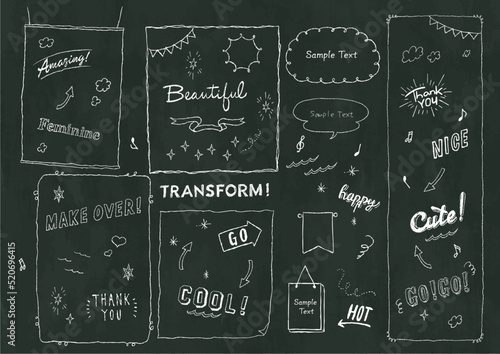 Amazing!
Feminine
Beautiful
Sample Text
Sample Text
Thank
YOU
NICE
Cute!
GO!GO!
TRANSFORM!
happy
MAKE OVER!
THANK
YOU
GO
COOL!
Sample
Text
HOT
Adobe Stock | #520696415